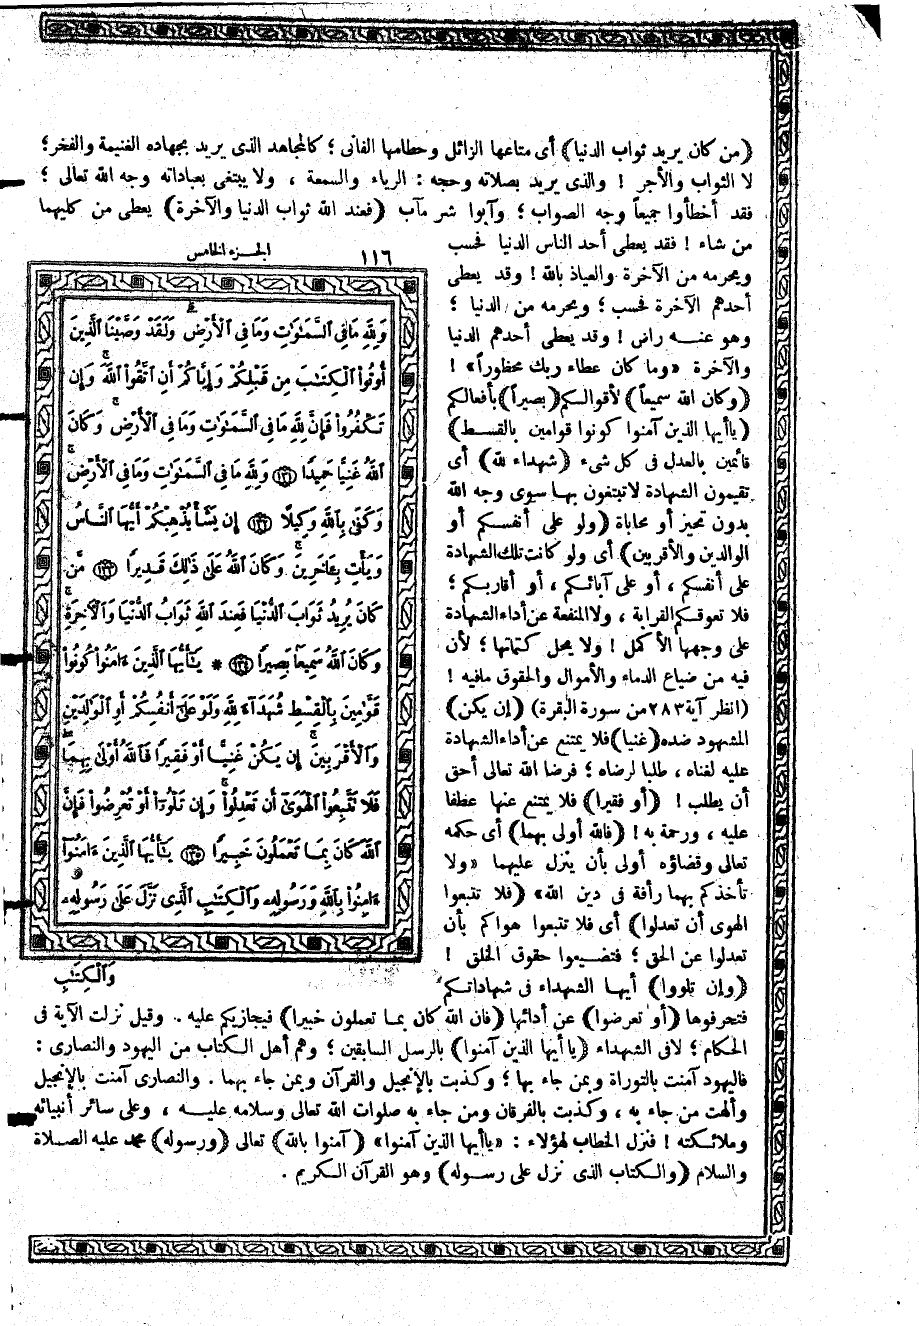 (من كان يريد ثواب الدنيا) أى متاعها الزائل وحطامها الفانى ؛ كالمجاهد الذى يريد بجهاده الغنيمة والفخر؛
لا الثواب والأجر ! والذى يريد بصلاته وحجه : الرياء والسمعة ، ولا يبتغى بعباداته وجه الله تعالى ؛
فقد أخطأوا جميعاً وجه الصواب ؛ وآبوا شر مآب (فعند الله ثواب الدنيا والآخرة) يعطى من كليهما
من شاء ! فقد يعطى أحد الناس الدنيا فحسب
ويحرمه من الآخرة والعياذ بالله ! وقد يعطى
أحدهم الآخرة فحسب ؛ ويحرمه من الدنيا ؛
وهو عنه راض ! وقد يعطى أحدهم الدنيا
والآخرة «وما كان عطاء ربك محظوراً» !
(وكان الله سميعاً) لأقوالكم (بصيراً) بأفعالكم
(ياأيها الذين آمنوا كونوا قوامين بالقسط)
قائمين بالعدل فى كل شىء (شهداء لله) أى
تقيمون الشهادة لاتبتغون بها سوى وجه الله
بدون تحيز أو محاباة (ولو على أنفسكم أو
الوالدين والأقربين) أى ولو كانت تلك الشهادة
على أنفسكم ، أو على آبائكم ، أو أقاربكم ؛
فلا تعوقكم القرابة ، ولا المنفعة عن أداء الشهادة
على وجهها الأكمل ! ولا يحل كتمانها ؛ لأن
فيه من ضياع الدماء والأموال والحقوق مافيه !
(انظر آية ٢٨٣ من سورة البقرة) (إن يكن)
المشهود ضده (غنيا) فلا يمتنع عن أداء الشهادة
عليه لغناه ، طلبا لرضاه ؛ فرضا الله تعالى أحق
أن يطلب ! (أو فقيرا) فلا يمتنع عنها عطفا
عليه ، ورحمة به ! (فالله أولى بهما) أى حكمه
تعالى وقضاؤه أولى بأن ينزل عليهما «ولا
تأخذكم بهما رأفة فى دين الله» (فلا تتبعوا
الهوى أن تعدلوا) أى فلا تتبعوا هواكم بأن
تعدلوا عن الحق ؛ فتضيعوا حقوق الخلق !
(وإن تلووا) أيها الشهداء فى شهاداتكم
فتحرفوها (أو تعرضوا) عن أدائها (فان الله كان بما تعملون خبيرا) فيجازيكم عليه . وقيل نزلت الآية فى
الحكام ؛ لافى الشهداء (ياأيها الذين آمنوا) بالرسل السابقين ؛ وهم أهل الكتاب من اليهود والنصارى :
فاليهود آمنت بالتوراة وبمن جاء بها ؛ وكذبت بالإنجيل والقرآن وبمن جاء بهما . والنصارى آمنت بالإنجيل
وألهت من جاء به ، وكذبت بالفرقان ومن جاء به صلوات الله تعالى وسلامه عليه ، وعلى سائر أنبيائه
وملائكته ! فنزل الخطاب لهؤلاء : «ياأيها الذين آمنوا» (آمنوا بالله) تعالى (ورسوله) محمد عليه الصلاة
والسلام (والكتاب الذى نزل على رسوله) وهو القرآن الكريم .
١١٦ الجزء الخامس
وَلِلَّهِ مَا فِى ٱلسَّمَـٰوَٰتِ وَمَا فِى ٱلْأَرْضِ وَلَقَدْ وَصَّيْنَا ٱلَّذِينَ
أُوتُوا۟ ٱلْكِتَـٰبَ مِن قَبْلِكُمْ وَإِيَّاكُمْ أَنِ ٱتَّقُوا۟ ٱللَّهَ وَإِن
تَكْفُرُوا۟ فَإِنَّ لِلَّهِ مَا فِى ٱلسَّمَـٰوَٰتِ وَمَا فِى ٱلْأَرْضِ وَكَانَ
ٱللَّهُ غَنِيًّا حَمِيدًا ١٣١ وَلِلَّهِ مَا فِى ٱلسَّمَـٰوَٰتِ وَمَا فِى ٱلْأَرْضِ
وَكَفَىٰ بِٱللَّهِ وَكِيلًا ١٣٢ إِن يَشَأْ يُذْهِبْكُمْ أَيُّهَا ٱلنَّاسُ
وَيَأْتِ بِـَٔاخَرِينَ وَكَانَ ٱللَّهُ عَلَىٰ ذَٰلِكَ قَدِيرًا ١٣٣ مَّن
كَانَ يُرِيدُ ثَوَابَ ٱلدُّنْيَا فَعِندَ ٱللَّهِ ثَوَابُ ٱلدُّنْيَا وَٱلْـَٔاخِرَةِ
وَكَانَ ٱللَّهُ سَمِيعًۢا بَصِيرًا ١٣٤ * يَـٰٓأَيُّهَا ٱلَّذِينَ ءَامَنُوا۟ كُونُوا۟
قَوَّٰمِينَ بِٱلْقِسْطِ شُهَدَآءَ لِلَّهِ وَلَوْ عَلَىٰٓ أَنفُسِكُمْ أَوِ ٱلْوَٰلِدَيْنِ
وَٱلْأَقْرَبِينَ إِن يَكُنْ غَنِيًّا أَوْ فَقِيرًا فَٱللَّهُ أَوْلَىٰ بِهِمَا
فَلَا تَتَّبِعُوا۟ ٱلْهَوَىٰٓ أَن تَعْدِلُوا۟ وَإِن تَلْوُۥٓا۟ أَوْ تُعْرِضُوا۟ فَإِنَّ
ٱللَّهَ كَانَ بِمَا تَعْمَلُونَ خَبِيرًا ١٣٥ يَـٰٓأَيُّهَا ٱلَّذِينَ ءَامَنُوٓا۟
ءَامِنُوا۟ بِٱللَّهِ وَرَسُولِهِۦ وَٱلْكِتَـٰبِ ٱلَّذِى نَزَّلَ عَلَىٰ رَسُولِهِۦ
وَٱلْكِتَـٰبِ